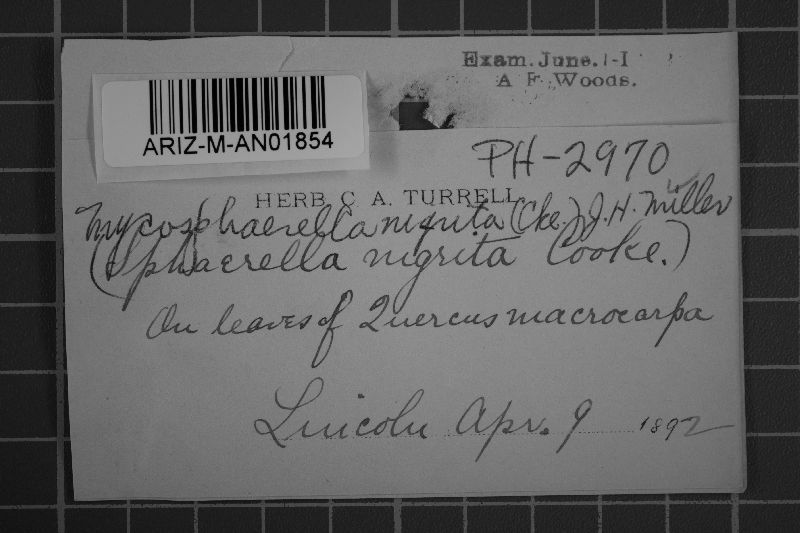 Exam. June. 1-I
A F Woods.
ARIZ-M-AN01854
PH-2970
HERB C A. TURRELL
Mycosphaerella nigrita (Cke.) J. H. Miller
(Sphaerella nigrita Cooke.)
On leaves of Quercus macrocarpa
Lincoln Apr. 9 1892